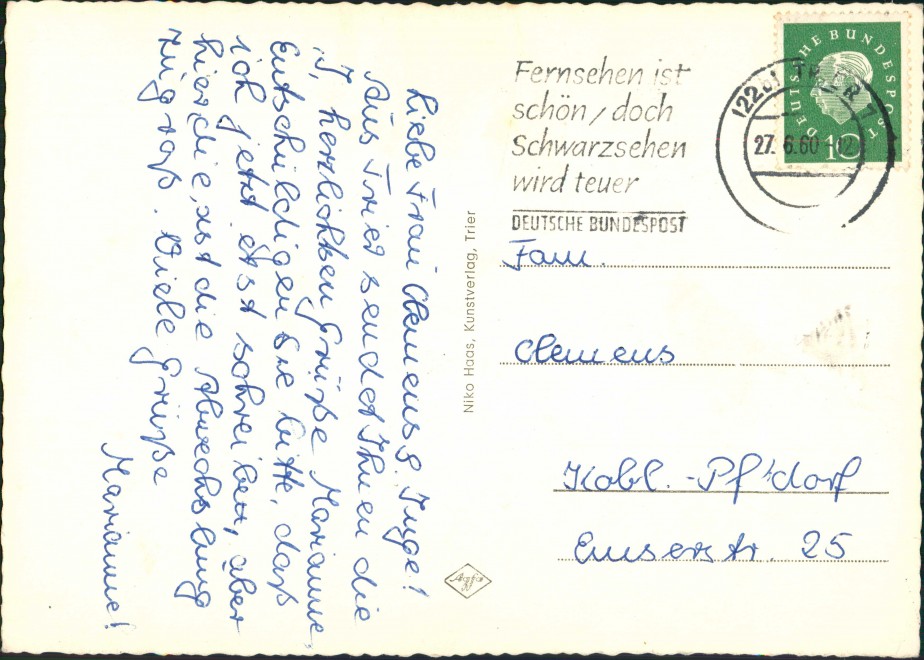 Liebe Frau Clemens & Inge!
Aus Trier sendet Ihnen die
herzlichsten Grüße Marianne.
Entschuldigen Sie bitte, daß
ich jetzt erst schreibe, aber
hier die, ist die Abwechslung
zu groß. Viele Grüße
Marianne!
Niko Haas, Kunstverlag, Trier
Agfa
Fernsehen ist
schön / doch
Schwarzsehen
wird teuer
DEUTSCHE BUNDESPOST
TRIER
27. 6. 60 - 12
DEUTSCHE BUNDESPOST
10
Fam.
Clemens
Kobl. - Pf'dorf
Emserstr. 25